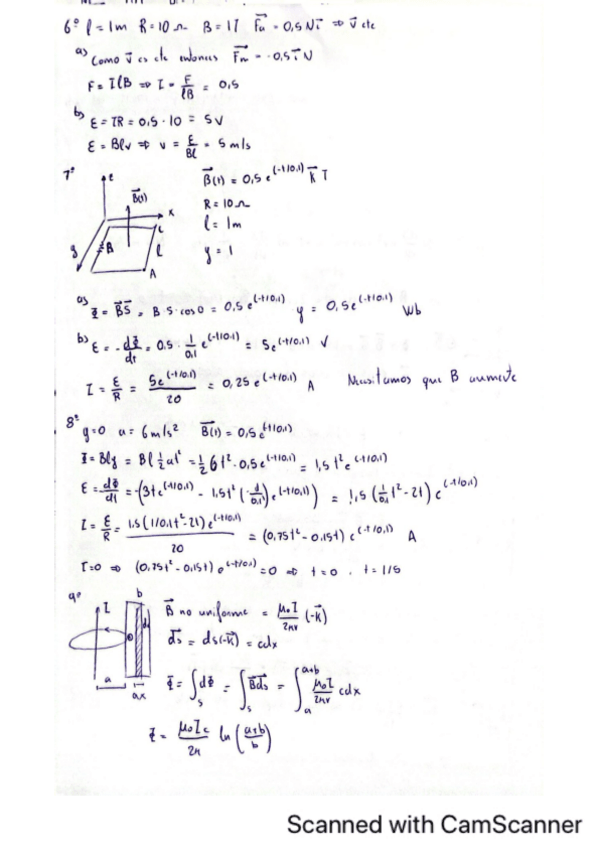 6º l = 1m R = 10 Ω B = 1T F⃗a = 0,5 N i⃗ ⇒ v⃗ cte
a) Como v⃗ es cte entonces F⃗m = -0,5 i⃗ N
F = IlB ⇒ I = F/lB = 0,5
b) ε = IR = 0,5 · 10 = 5V
ε = Blv ⇒ v = ε/Bl = 5 m/s
7º B⃗(t) = 0,5 e^(-t/0,1) k⃗ T
R = 10 Ω
l = 1m
y = 1
z B⃗(t) x y B C l A
a) Φ = B⃗S⃗ = B·S·cos0 = 0,5 e^(-t/0,1) y = 0,5 e^(-t/0,1) Wb
b) ε = -dΦ/dt = 0,5 · 1/0,1 e^(-t/0,1) = 5e^(-t/0,1) V
I = ε/R = 5e^(-t/0,1)/20 = 0,25 e^(-t/0,1) A Necesitamos que B aumente
8º y=0 a = 6 m/s² B⃗(t) = 0,5 e^(-t/0,1)
Φ = Bly = Bl ½at² = ½ 6t² · 0,5e^(-t/0,1) = 1,5 t² e^(-t/0,1)
ε = -dΦ/dt = -(3t e^(-t/0,1) - 1,5t² (1/0,1) e^(-t/0,1)) = 1,5 (1/0,1 t² - 2t) e^(-t/0,1)
I = ε/R = 1,5(1/0,1t² - 2t) e^(-t/0,1)/20 = (0,75t² - 0,15t) e^(-t/0,1) A
I=0 ⇒ (0,75t² - 0,15t) e^(-t/0,1) = 0 ⇒ t = 0 . t = 1/5
9º I b a dx
B⃗ no uniforme = μ₀I/2πr (-k⃗)
d⃗s = ds(-k⃗) = cdx
Φ = ∫s dΦ = ∫s B⃗d⃗s = ∫a a+b μ₀I/2πr cdx
Φ = μ₀Ic/2π ln (a+b/b)
Scanned with CamScanner